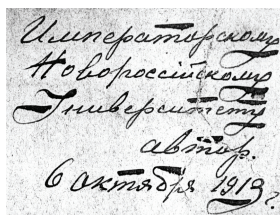 Императорскому
Новороссійскому
Университету
автор.
6 октября 1913 г.